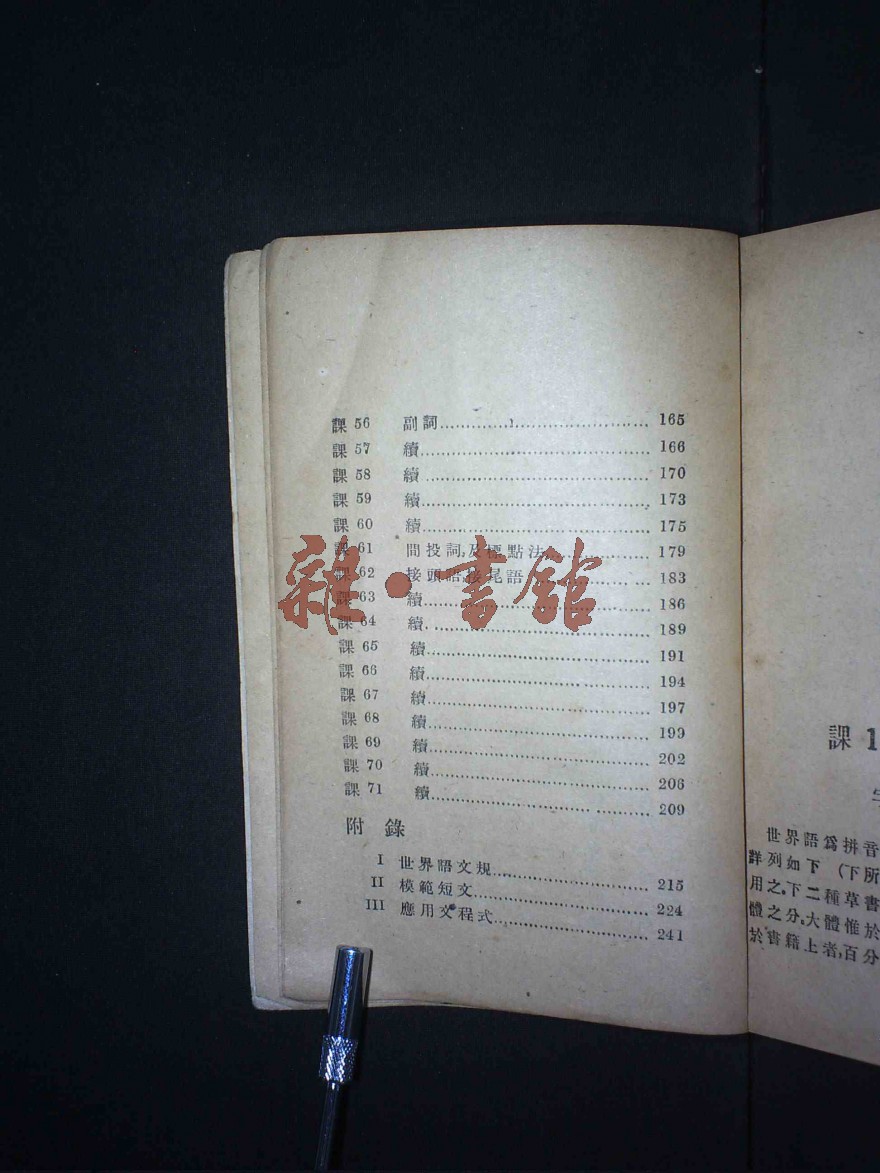 課 56 副詞 165
課 57 續 166
課 58 續 170
課 59 續 173
課 60 續 175
課 61 間投詞,及標點法 179
課 62 接頭語接尾語 183
課 63 續 186
課 64 續 189
課 65 續 191
課 66 續 194
課 67 續 197
課 68 續 199
課 69 續 202
課 70 續 206
課 71 續 209
附 錄
I 世界語文規 215
II 模範短文 224
III 應用文程式 241
雜·書館
課 1
世界語爲拼音
詳列如下（下所
用之,下二種草書
體之分,大體惟於
於書籍上者,百分